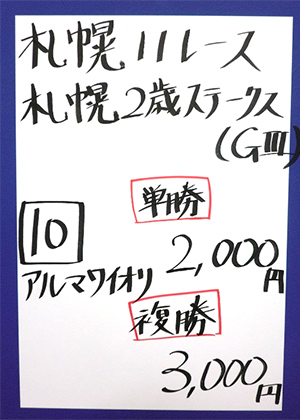 札幌11レース
札幌2歳ステークス
(GIII)
単勝
10
2,000円
アルマワイオリ
複勝
3,000円